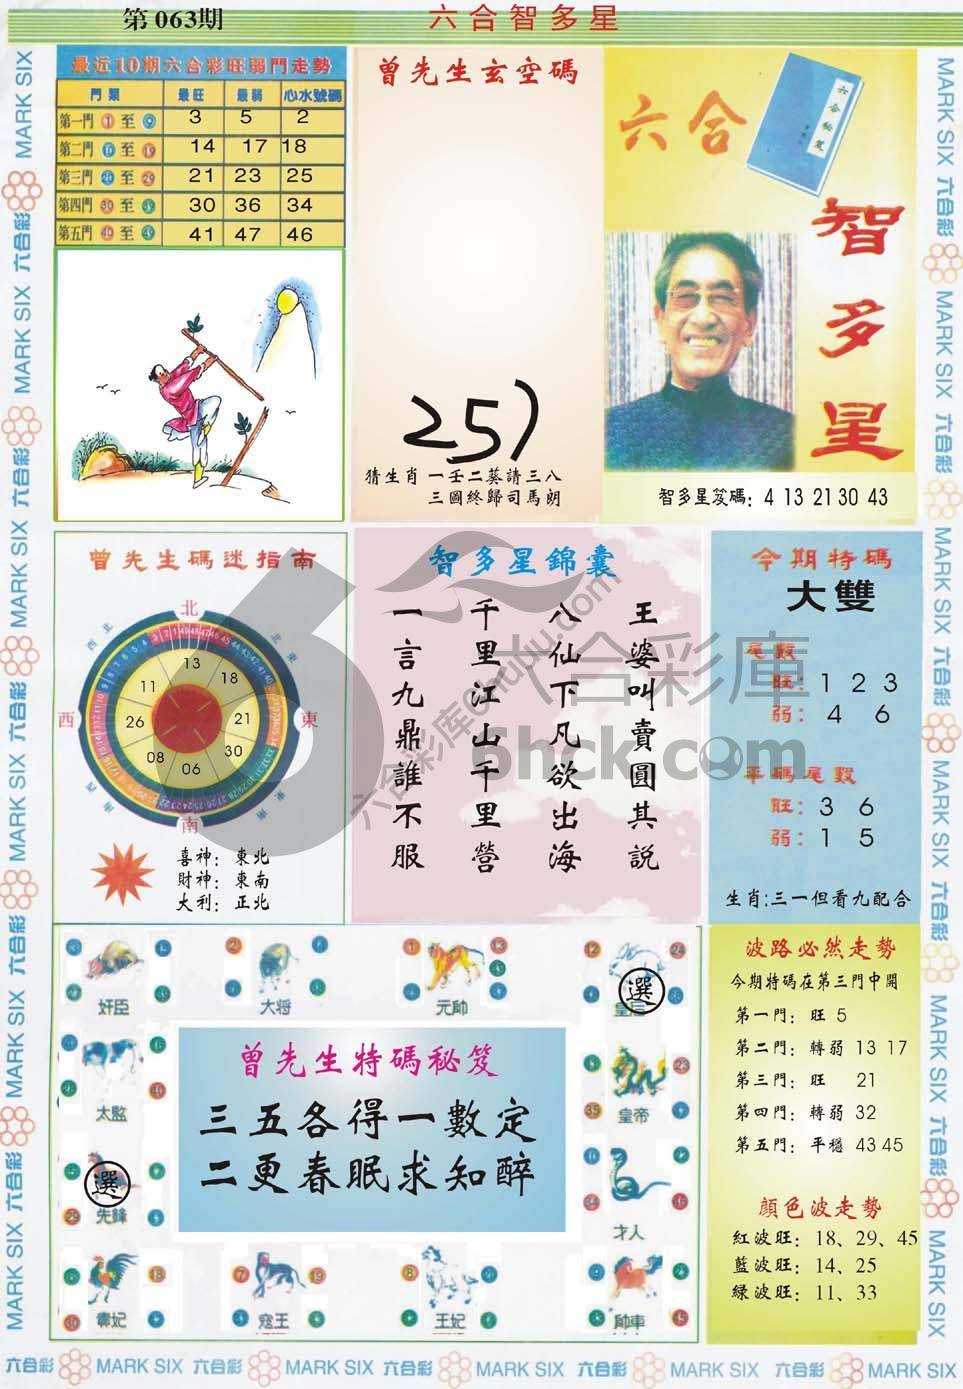 第063期
六合智多星
最近10期六合彩旺弱門走勢
門類 最旺 最弱 心水號碼
第一門 1 至 9 3 5 2
第二門 10 至 19 14 17 18
第三門 20 至 29 21 23 25
第四門 30 至 39 30 36 34
第五門 40 至 49 41 47 46
曾先生玄空碼
257
猜生肖 一壬二葵請三八
三國終歸司馬朗
六合
智多星
智多星笈碼: 4 13 21 30 43
曾先生碼迷指南
北
西 東
南
13
18
21
30
06
08
26
11
喜神: 東北
財神: 東南
大利: 正北
智多星錦囊
王婆叫賣圓其說
八仙下凡欲出海
千里江山千里營
一言九鼎誰不服
今期特碼
大雙
尾數
旺: 1 2 3
弱: 4 6
平碼尾數
旺: 3 6
弱: 1 5
生肖:三一但看九配合
奸臣
大將
元帥
皇后
選
太監
皇帝
選
先鋒
才人
寇王
王妃
帥車
曾先生特碼秘笈
三五各得一數定
二更春眠求知醉
波路必然走勢
今期特碼在第三門中開
第一門: 旺 5
第二門: 轉弱 13 17
第三門: 旺 21
第四門: 轉弱 32
第五門: 平穩 43 45
顏色波走勢
紅波旺: 18、29、45
藍波旺: 14、25
綠波旺: 11、33
六合彩 MARK SIX 六合彩 MARK SIX 六合彩 MARK SIX 六合彩 MARK SIX 六合彩
六合彩庫
6hck.com
六合彩库 6hcku.com